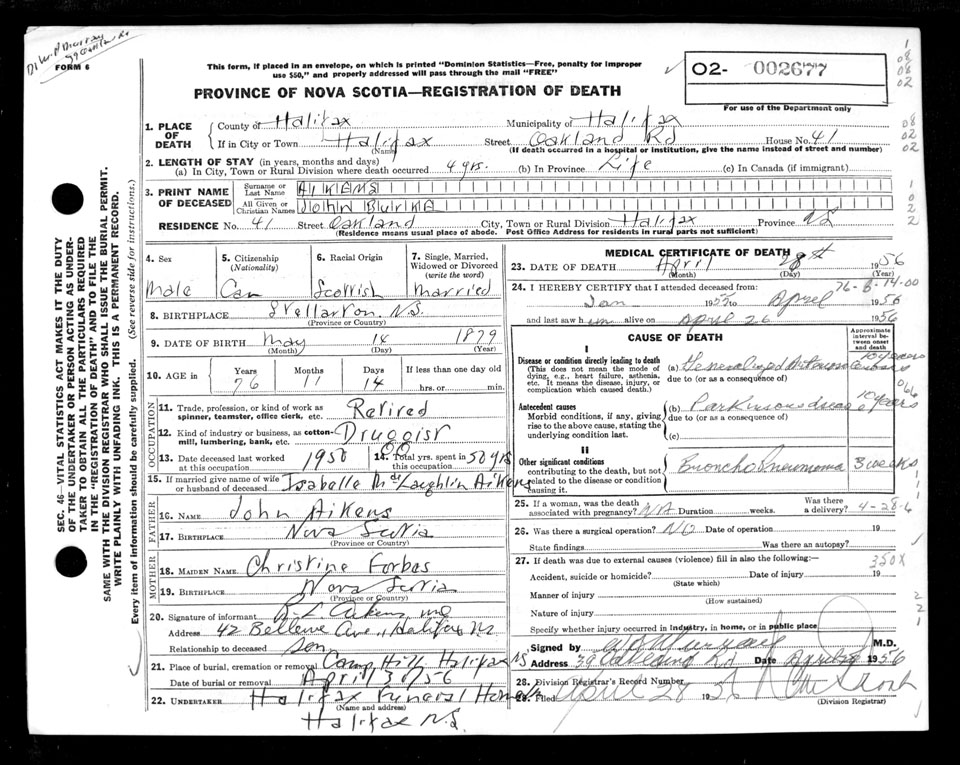 FORM 6
This form, if placed in an envelope, on which is printed "Dominion Statistics—Free, penalty for improper
use $50," and properly addressed will pass through the mail "FREE"
O2- 002677
For use of the Department only
PROVINCE OF NOVA SCOTIA—REGISTRATION OF DEATH
1. PLACE OF DEATH County of Halifax Municipality of Halifax
If in City or Town Halifax (Name) Street Oakland Rd House No. 41
(If death occurred in a hospital or institution, give the name instead of street and number)
2. LENGTH OF STAY (in years, months and days)
(a) In City, Town or Rural Division where death occurred 4 yrs. (b) In Province Life (c) In Canada (if immigrant)
3. PRINT NAME OF DECEASED Surname or Last Name AIKENS
All Given or Christian Names JOHN BURKE
RESIDENCE No. 41 Street Oakland City, Town or Rural Division Halifax Province NS
(Residence means usual place of abode. Post Office Address for residents in rural parts not sufficient)
4. Sex
Male
5. Citizenship
(Nationality)
Can
6. Racial Origin
Scottish
7. Single, Married,
Widowed or Divorced
(write the word)
Married
8. BIRTHPLACE Stellarton N.S.
(Province or Country)
9. DATE OF BIRTH May 14 1879
(Month) (Day) (Year)
10. AGE in Years Months Days If less than one day old
76 11 14 hrs. or min.
OCCUPATION
11. Trade, profession, or kind of work as
spinner, teamster, office clerk, etc. Retired
12. Kind of industry or business, as cotton-
mill, lumbering, bank, etc. Druggist
13. Date deceased last worked
at this occupation 1950
14. Total yrs. spent in
this occupation 50 yrs
15. If married give name of wife
or husband of deceased Isabelle McLaughlin Aikens
FATHER
16. NAME John Aikens
17. BIRTHPLACE Nova Scotia
(Province or Country)
MOTHER
18. MAIDEN NAME Christine Forbes
19. BIRTHPLACE Nova Scotia
(Province or Country)
20. Signature of informant Aikens MD
Address 42 Bellevue Ave., Halifax NS
Relationship to deceased son
21. Place of burial, cremation or removal Camp Hill Halifax NS
Date of burial or removal April 30/56
22. UNDERTAKER Halifax Funeral Home
(Name and address)
Halifax N.S.
MEDICAL CERTIFICATE OF DEATH
23. DATE OF DEATH April 28th 1956
(Month) (Day) (Year)
24. I HEREBY CERTIFY that I attended deceased from: 76-6-14-00
Jan to April 1956
and last saw him alive on April 26 1956
CAUSE OF DEATH
Approximate
interval be-
tween onset
and death
I
Disease or condition directly leading to death
(This does not mean the mode of
dying, e.g., heart failure, asthenia,
etc. It means the disease, injury, or
complication which caused death.)
(a) Generalized Arteriosclerosis 10 years
due to (or as a consequence of)
Antecedent causes
Morbid conditions, if any, giving
rise to the above cause, stating the
underlying condition last.
(b) Parkinsons disease 10 years
due to (or as a consequence of)
(c)
II
Other significant conditions
contributing to the death, but not
related to the disease or condition
causing it.
Broncho Pneumonia 3 weeks
25. If a woman, was the death
associated with pregnancy? NA Duration weeks. Was there
a delivery? 4-28-6
26. Was there a surgical operation? NO Date of operation 19
State findings Was there an autopsy?
27. If death was due to external causes (violence) fill in also the following: 350X
Accident, suicide or homicide? Date of injury 19
(State which)
Manner of injury
(How sustained)
Nature of injury
Specify whether injury occurred in industry, in home, or in public place
Signed by M.D.
Address 39 Oakland Rd Date April 28 1956
28. Division Registrar's Record Number
29. Filed April 28 1956
(Division Registrar)
SEC. 46—VITAL STATISTICS ACT MAKES IT THE DUTY
OF THE UNDERTAKER OR PERSON ACTING AS UNDER-
TAKER TO OBTAIN ALL THE PARTICULARS REQUIRED
IN THE "REGISTRATION OF DEATH" AND TO FILE THE
SAME WITH THE DIVISION REGISTRAR WHO SHALL ISSUE THE BURIAL PERMIT.
WRITE PLAINLY WITH UNFADING INK. THIS IS A PERMANENT RECORD.
Every item of information should be carefully supplied. (See reverse side for instructions.)